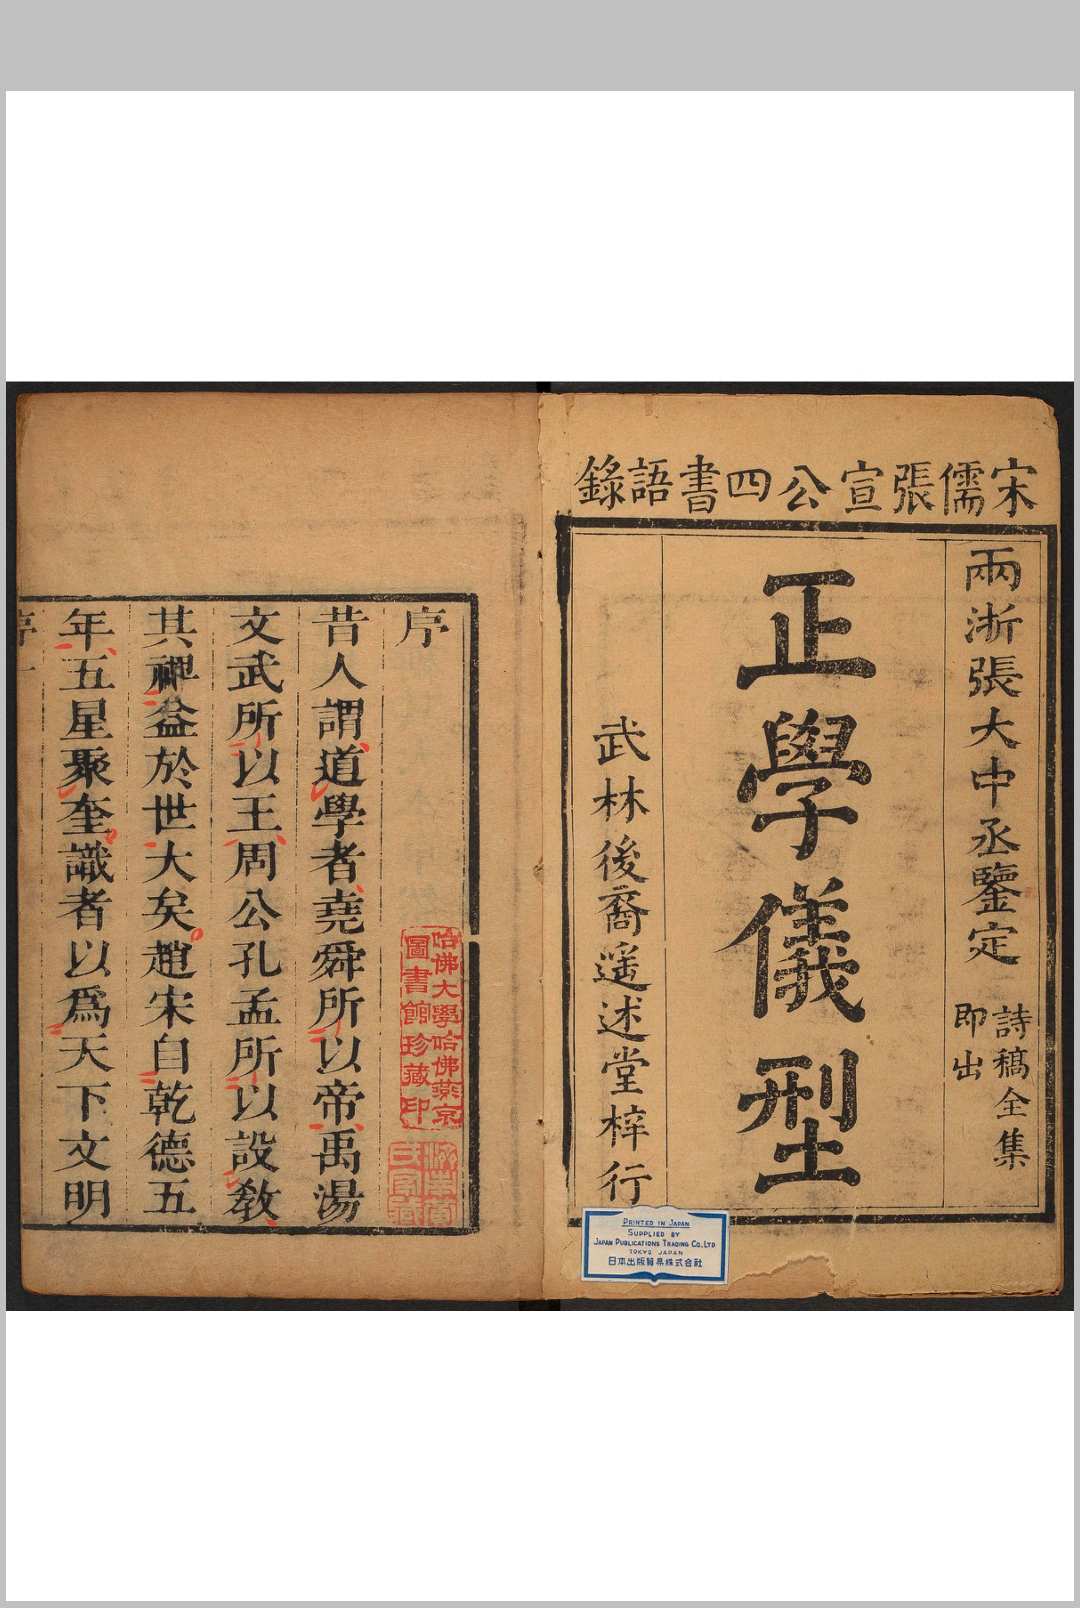 宋儒張宣公四書語錄
兩浙張大中丞鑒定
詩稿全集
即出
正學儀型
武林後裔遥述堂梓行
PRINTED IN JAPAN
SUPPLIED BY
JAPAN PUBLICATIONS TRADING CO., LTD
TOKYO JAPAN
日本出版貿易株式会社
序
哈佛大學哈佛燕京
圖書館珍藏印
昔人謂道學者堯舜所以帝禹湯
文武所以王周公孔孟所以設敎
其裨益於世大矣趙宋自乾德五
年五星聚奎識者以爲天下文明
序一